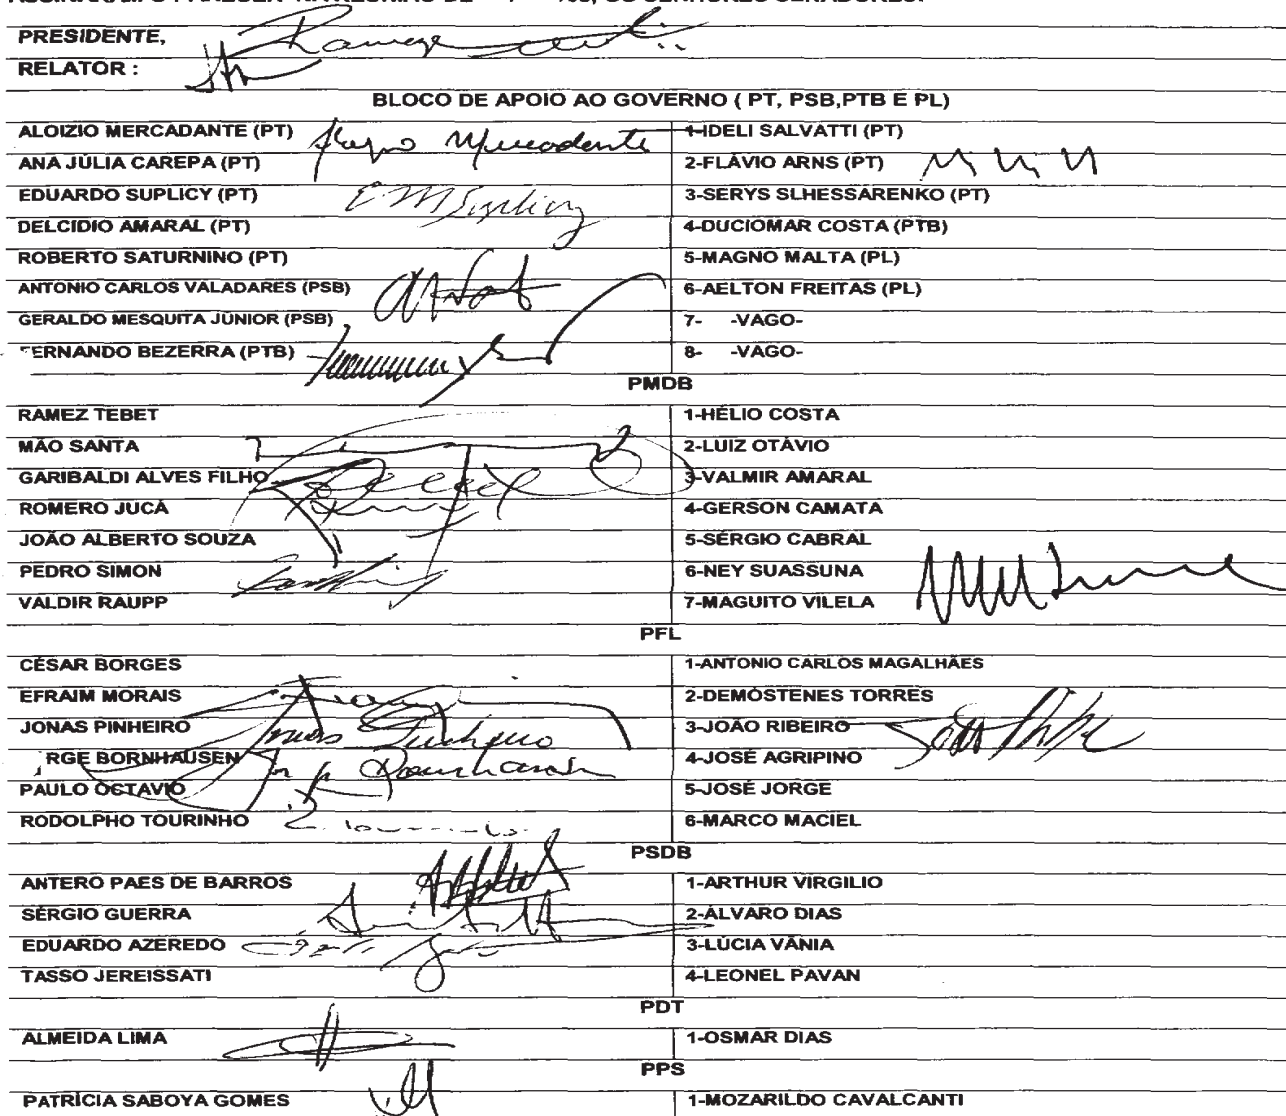 PRESIDENTE,
RELATOR :
BLOCO DE APOIO AO GOVERNO ( PT, PSB,PTB E PL)
ALOIZIO MERCADANTE (PT) 1-IDELI SALVATTI (PT)
ANA JÚLIA CAREPA (PT) 2-FLÁVIO ARNS (PT)
EDUARDO SUPLICY (PT) 3-SERYS SLHESSARENKO (PT)
DELCÍDIO AMARAL (PT) 4-DUCIOMAR COSTA (PTB)
ROBERTO SATURNINO (PT) 5-MAGNO MALTA (PL)
ANTONIO CARLOS VALADARES (PSB) 6-AELTON FREITAS (PL)
GERALDO MESQUITA JÚNIOR (PSB) 7- -VAGO-
FERNANDO BEZERRA (PTB) 8- -VAGO-
PMDB
RAMEZ TEBET 1-HÉLIO COSTA
MÃO SANTA 2-LUIZ OTÁVIO
GARIBALDI ALVES FILHO 3-VALMIR AMARAL
ROMERO JUCÁ 4-GERSON CAMATA
JOÃO ALBERTO SOUZA 5-SÉRGIO CABRAL
PEDRO SIMON 6-NEY SUASSUNA
VALDIR RAUPP 7-MAGUITO VILELA
PFL
CÉSAR BORGES 1-ANTONIO CARLOS MAGALHÃES
EFRAIM MORAIS 2-DEMÓSTENES TORRES
JONAS PINHEIRO 3-JOÃO RIBEIRO
RGE BORNHAUSEN 4-JOSÉ AGRIPINO
PAULO OCTAVIO 5-JOSÉ JORGE
RODOLPHO TOURINHO 6-MARCO MACIEL
PSDB
ANTERO PAES DE BARROS 1-ARTHUR VIRGILIO
SÉRGIO GUERRA 2-ÁLVARO DIAS
EDUARDO AZEREDO 3-LÚCIA VÂNIA
TASSO JEREISSATI 4-LEONEL PAVAN
PDT
ALMEIDA LIMA 1-OSMAR DIAS
PPS
PATRÍCIA SABOYA GOMES 1-MOZARILDO CAVALCANTI